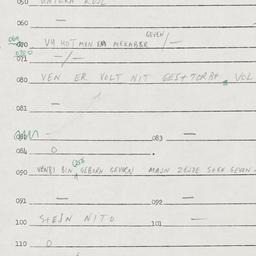 050
060 —
070 VU HOT MEN EM MEKABER GEVEN / —
071 — / —
080 VEN ER VOLT NIT GESTORBN, VOL
081 —
082 — 083 —
084 0 .
090 VEN BIN GEBORN GEVORN MAJN ZEJDE
091 — 092 —
100 STEJN NITO 101 —
110 0